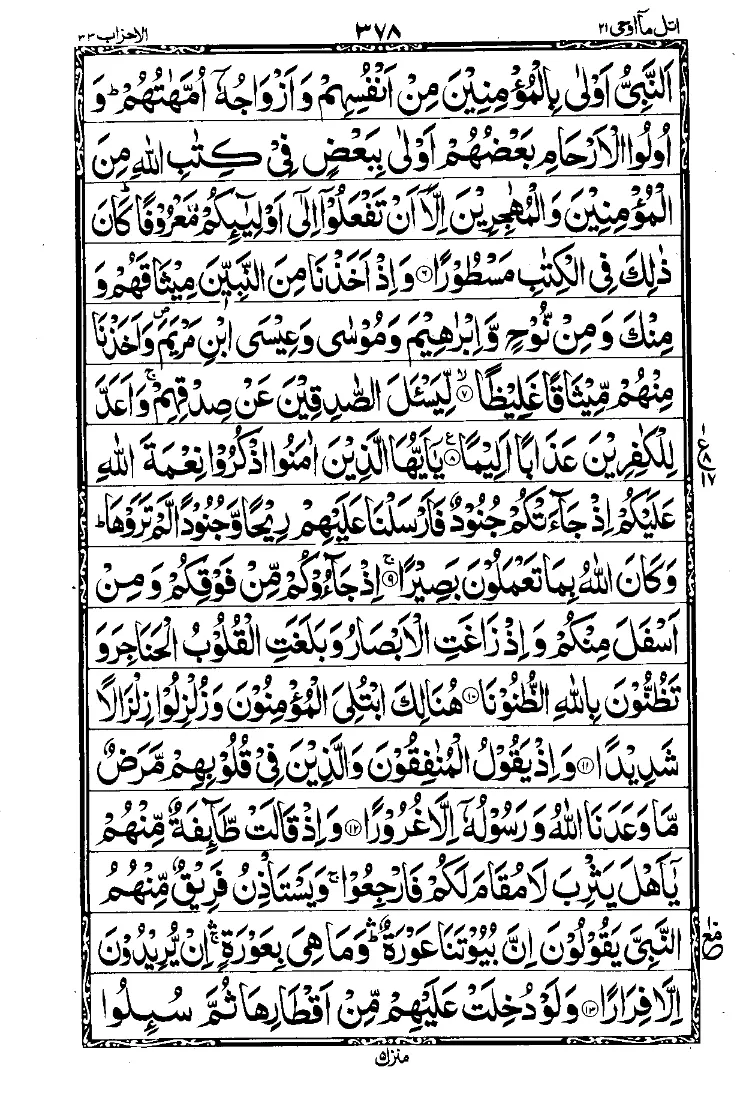 اتل مآ اوحی ۲۱ ۳۷۸ الاحزاب ۳۳
اَلنَّبِیُّ اَوْلٰی بِالْمُؤْمِنِیْنَ مِنْ اَنْفُسِهِمْ وَ اَزْوَاجُهٗۤ اُمَّهٰتُهُمْ ؕ وَ
اُولُوا الْاَرْحَامِ بَعْضُهُمْ اَوْلٰی بِبَعْضٍ فِیْ كِتٰبِ اللّٰهِ مِنَ
الْمُؤْمِنِیْنَ وَ الْمُهٰجِرِیْنَ اِلَّاۤ اَنْ تَفْعَلُوْۤا اِلٰۤی اَوْلِیٰٓىِٕكُمْ مَّعْرُوْفًا ؕ كَانَ
ذٰلِكَ فِی الْكِتٰبِ مَسْطُوْرًا ۶ وَ اِذْ اَخَذْنَا مِنَ النَّبِیّٖنَ مِیْثَاقَهُمْ وَ
مِنْكَ وَ مِنْ نُّوْحٍ وَّ اِبْرٰهِیْمَ وَ مُوْسٰی وَ عِیْسَی ابْنِ مَرْیَمَ ۪ وَ اَخَذْنَا
مِنْهُمْ مِّیْثَاقًا غَلِیْظًا ۷ ۙ لِّیَسْـَٔلَ الصّٰدِقِیْنَ عَنْ صِدْقِهِمْ ۚ وَ اَعَدَّ
لِلْكٰفِرِیْنَ عَذَابًا اَلِیْمًا ۸ ع یٰۤاَیُّهَا الَّذِیْنَ اٰمَنُوا اذْكُرُوْا نِعْمَةَ اللّٰهِ
ع ۸ ۱۷
عَلَیْكُمْ اِذْ جَآءَتْكُمْ جُنُوْدٌ فَاَرْسَلْنَا عَلَیْهِمْ رِیْحًا وَّ جُنُوْدًا لَّمْ تَرَوْهَا ؕ
وَ كَانَ اللّٰهُ بِمَا تَعْمَلُوْنَ بَصِیْرًا ۹ ۚ اِذْ جَآءُوْكُمْ مِّنْ فَوْقِكُمْ وَ مِنْ
اَسْفَلَ مِنْكُمْ وَ اِذْ زَاغَتِ الْاَبْصَارُ وَ بَلَغَتِ الْقُلُوْبُ الْحَنَاجِرَ وَ
تَظُنُّوْنَ بِاللّٰهِ الظُّنُوْنَا ۱۰ هُنَالِكَ ابْتُلِیَ الْمُؤْمِنُوْنَ وَ زُلْزِلُوْا زِلْزَالًا
شَدِیْدًا ۱۱ وَ اِذْ یَقُوْلُ الْمُنٰفِقُوْنَ وَ الَّذِیْنَ فِیْ قُلُوْبِهِمْ مَّرَضٌ
مَّا وَعَدَنَا اللّٰهُ وَ رَسُوْلُهٗۤ اِلَّا غُرُوْرًا ۱۲ وَ اِذْ قَالَتْ طَّآىِٕفَةٌ مِّنْهُمْ
یٰۤاَهْلَ یَثْرِبَ لَا مُقَامَ لَكُمْ فَارْجِعُوْا ۚ وَ یَسْتَاْذِنُ فَرِیْقٌ مِّنْهُمُ
النَّبِیَّ یَقُوْلُوْنَ اِنَّ بُیُوْتَنَا عَوْرَةٌ ۛؕ وَ مَا هِیَ بِعَوْرَةٍ ۛۚ اِنْ یُّرِیْدُوْنَ
مع
اِلَّا فِرَارًا ۱۳ وَ لَوْ دُخِلَتْ عَلَیْهِمْ مِّنْ اَقْطَارِهَا ثُمَّ سُىِٕلُوا
منزل ۵